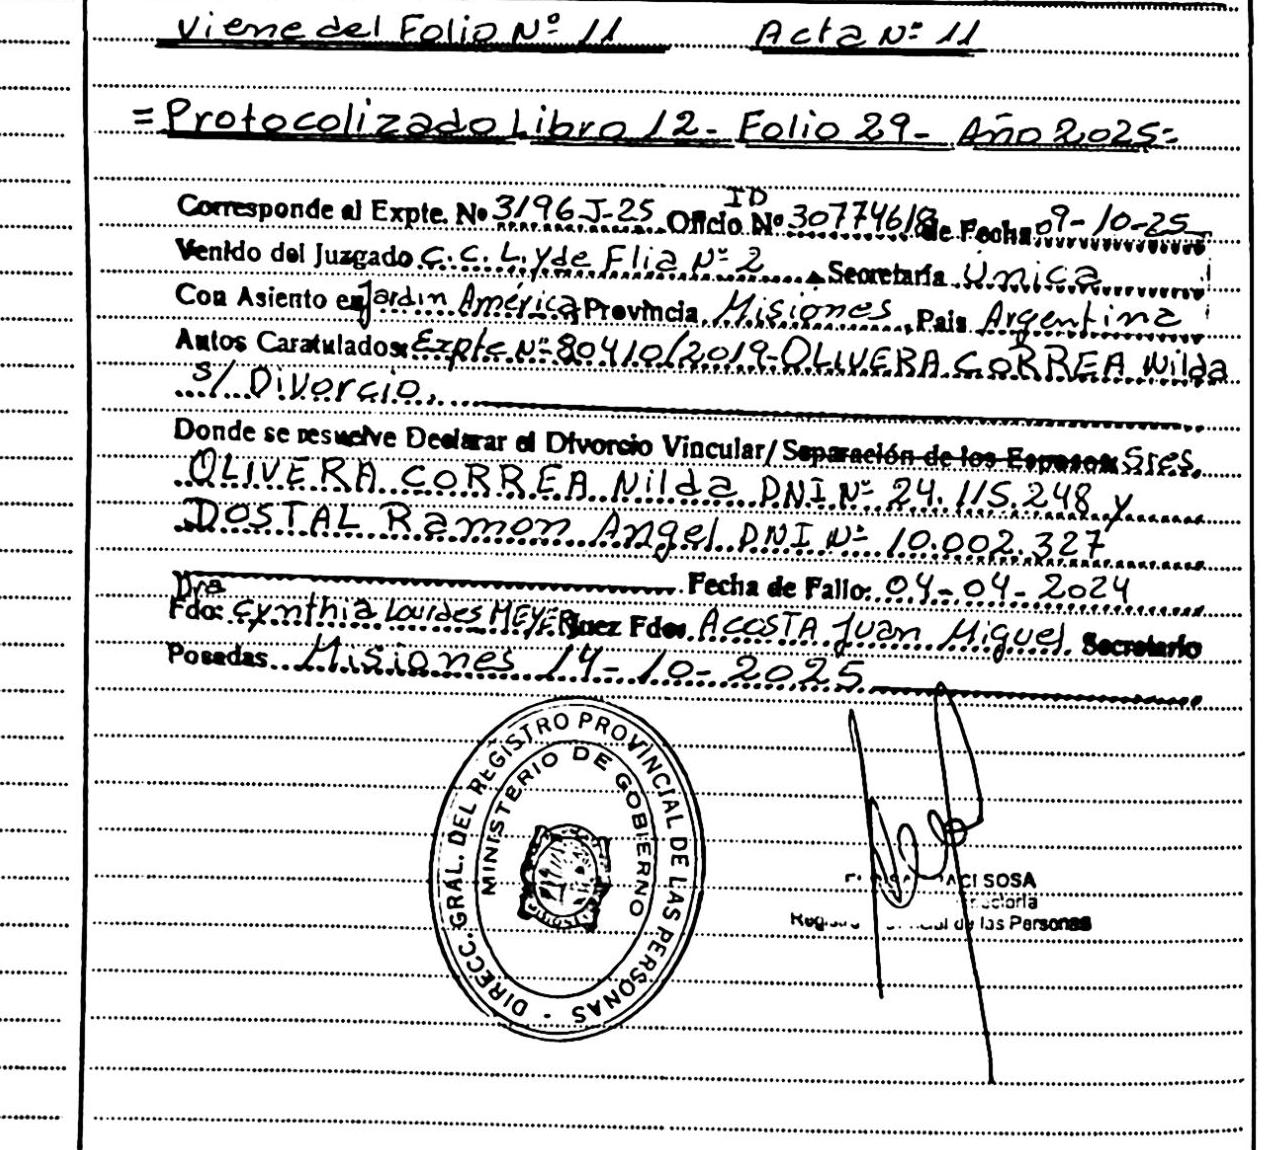 Viene del Folio Nº 11 Acta Nº 11
=Protocolizado Libro 12- Folio 29- Año 2025=
Corresponde al Expte. Nº 3196 J-25 Oficio ID Nº 30774618 de Fecha 09-10-25
Venido del Juzgado C.C.L. y de Flia Nº 2 Secretaría Única
Con Asiento en Jardin América Provincia Misiones País Argentina
Autos Caratulados: Expte Nº 80410/2019-OLIVERA CORREA Nilda
s/ Divorcio.
Donde se resuelve Declarar el Divorcio Vincular/ Separación de los Esposos: Sres.
OLIVERA CORREA Nilda DNI Nº 24.115.248 y
DOSTAL Ramon Angel DNI Nº 10.002.327
Fecha de Fallo: 04-04-2024
Fdo: Dra Cynthia Lourdes MEYER Juez Fdo: ACOSTA Juan Miguel Secretario
Posadas Misiones 14-10-2025
DIRECC. GRAL. DEL REGISTRO PROVINCIAL DE LAS PERSONAS -
MINISTERIO DE GOBIERNO
SOSA
de las Personas